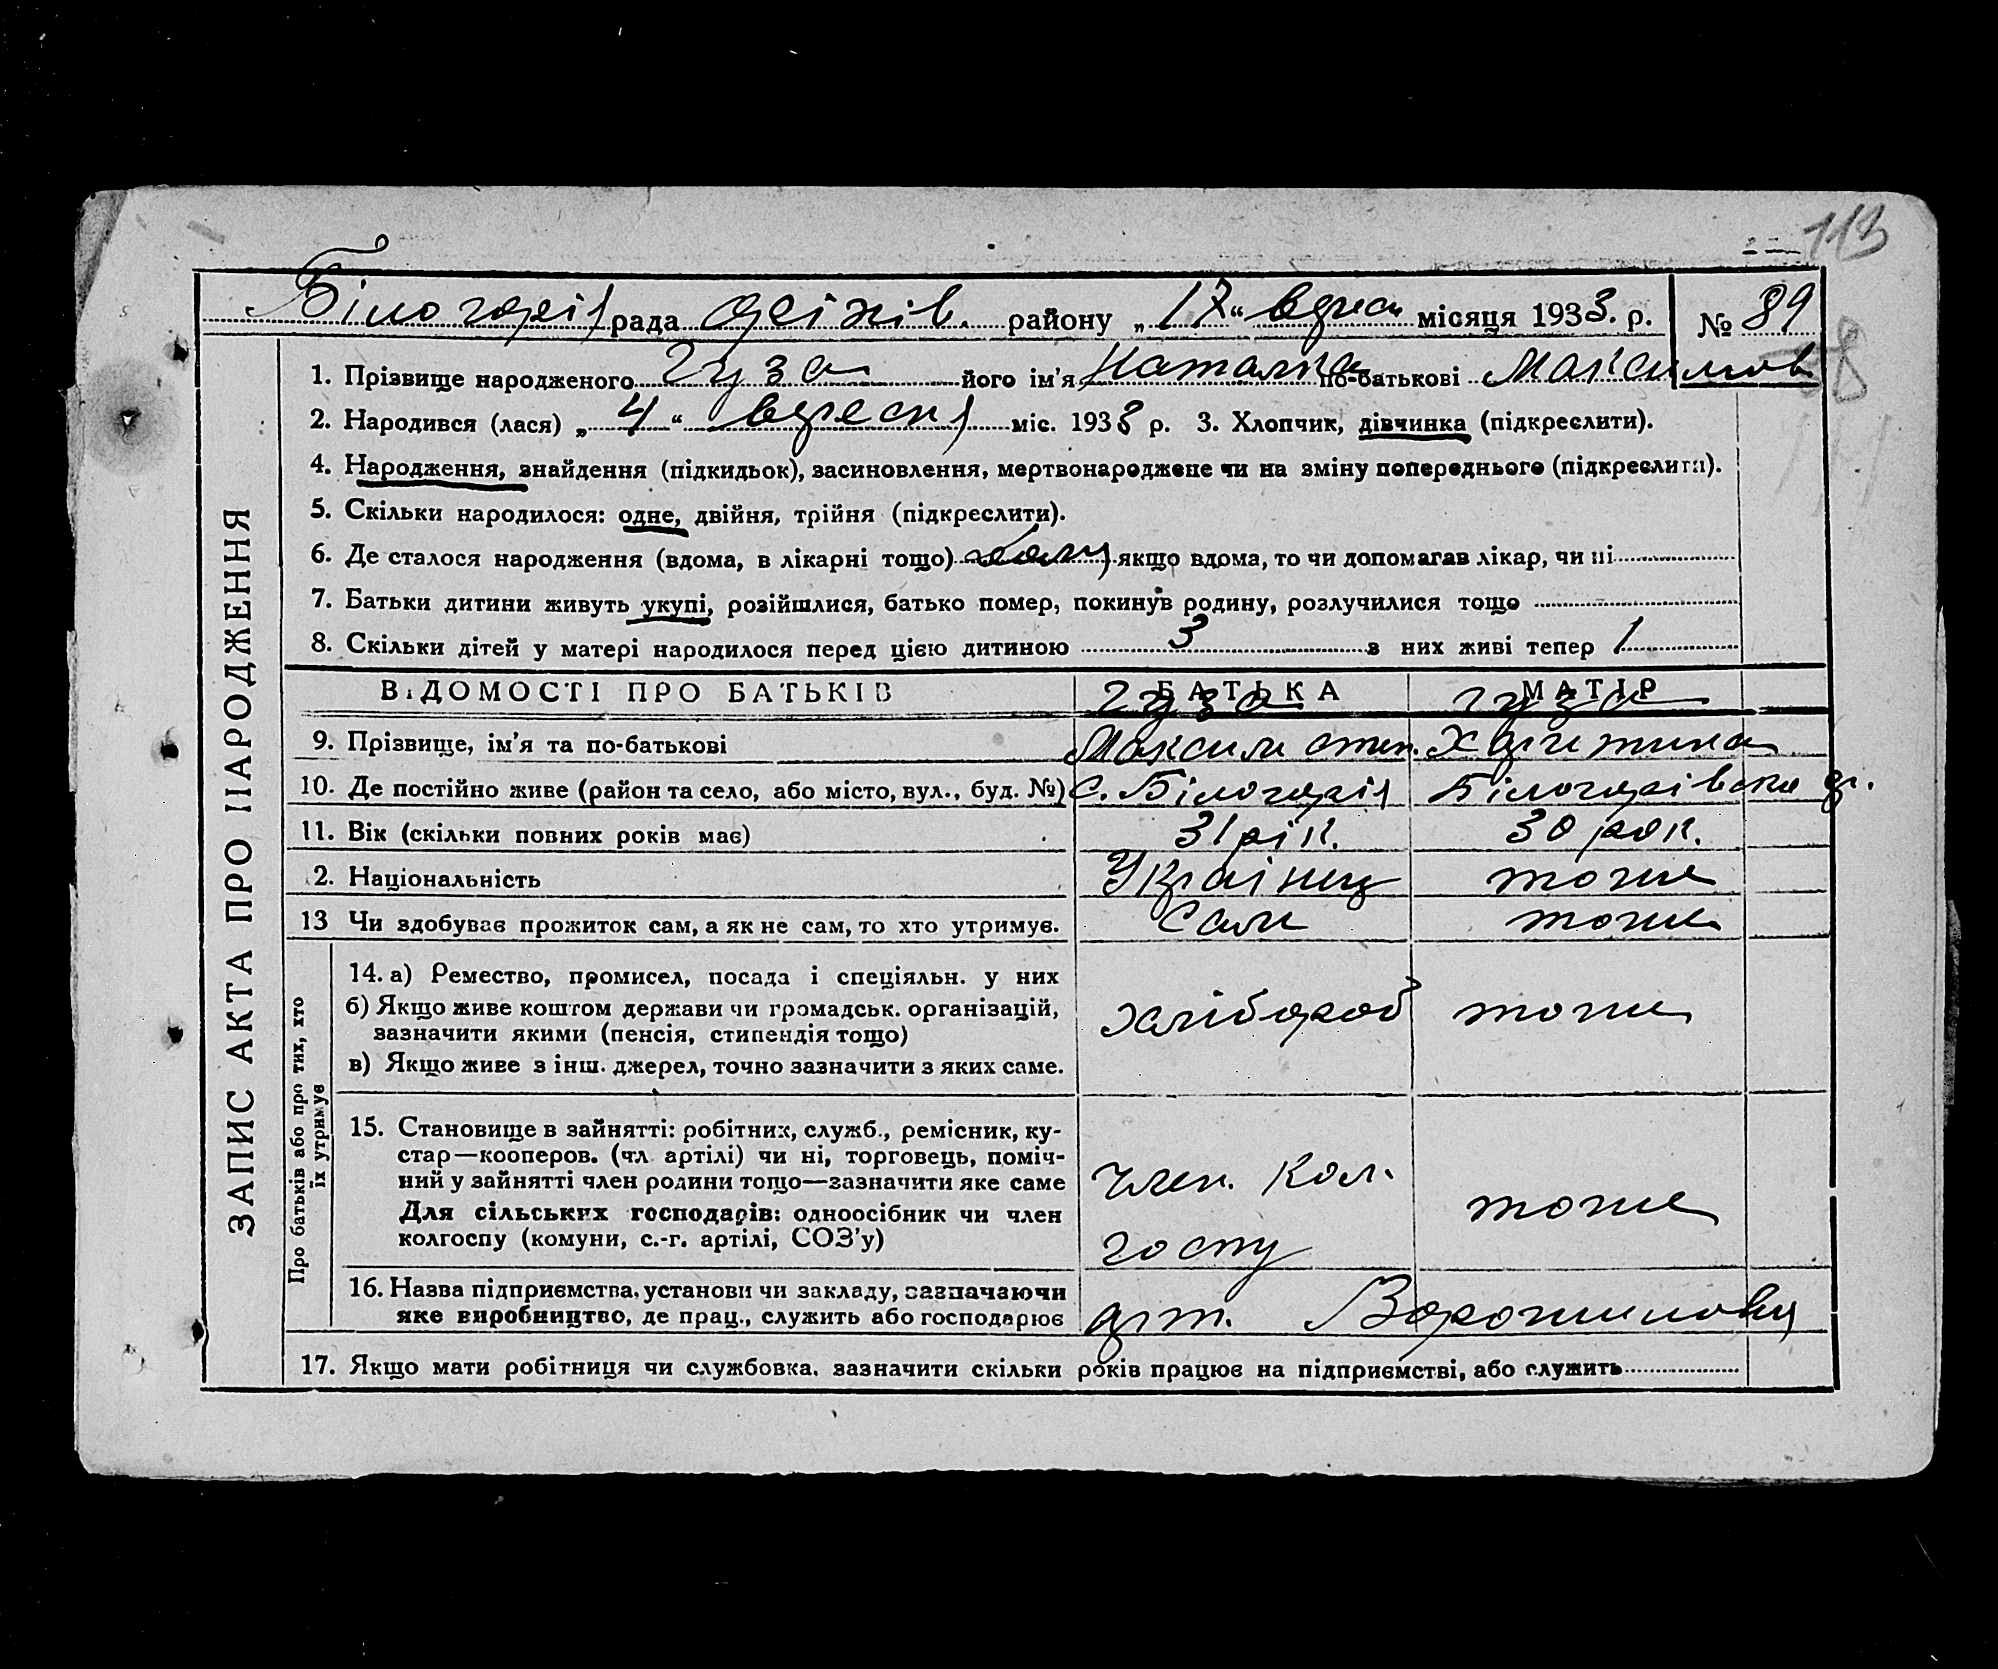 113
Білогорія рада Оріхів. району „17“ верес місяця 1933. р. № 89
1. Прізвище народженого Гуза його ім'я Наталка по-батькові Максимов
2. Народився (лася) „4“ вересня міс. 1933 р. 3. Хлопчик, дівчинка (підкреслити).
4. Народження, знайдення (підкидьок), засиновлення, мертвонароджене чи на зміну попереднього (підкреслити).
5. Скільки народилося: одне, двійня, трійня (підкреслити).
6. Де сталося народження (вдома, в лікарні тощо) якщо вдома, то чи допомагав лікар, чи ні
7. Батьки дитини живуть укупі, розійшлися, батько помер, покинув родину, розлучилися тощо
8. Скільки дітей у матері народилося перед цією дитиною 3 з них живі тепер 1
ВІДОМОСТІ ПРО БАТЬКІВ БАТЬКА МАТІР
Гуза Гуза
9. Прізвище, ім'я та по-батькові Максим степ. Христина
10. Де постійно живе (район та село, або місто, вул., буд. №) С. Білогорія Білогорівська
11. Вік (скільки повних років має) 31 рік. 30 рок.
2. Національність Українец тоже
13 Чи здобуває прожиток сам, а як не сам, то хто утримує. Сам тоже
14. а) Ремество, промисел, посада і спеціяльн. у них
б) Якщо живе коштом держави чи громадськ. організацій,
зазначити якими (пенсія, стипендія тощо)
в) Якщо живе з інш. джерел, точно зазначити з яких саме.
хлібороб тоже
15. Становище в зайнятті: робітник, служб., ремісник, ку-
стар—кооперов. (чл артілі) чи ні, торговець, поміч-
ний у зайнятті член родини тощо—зазначити яке саме
Для сільських господарів: одноосібник чи член
колгоспу (комуни, с.-г. артілі, СОЗ'у)
член. Кол.
госпу тоже
16. Назва підприємства, установи чи закладу, зазначаючи
яке виробництво, де прац., служить або господарює
арт. Ворошилова
17. Якщо мати робітниця чи службовка, зазначити скільки років працює на підприємстві, або служить
ЗАПИС АКТА ПРО НАРОДЖЕННЯ
Про батьків або про тих, хто
їх утримує